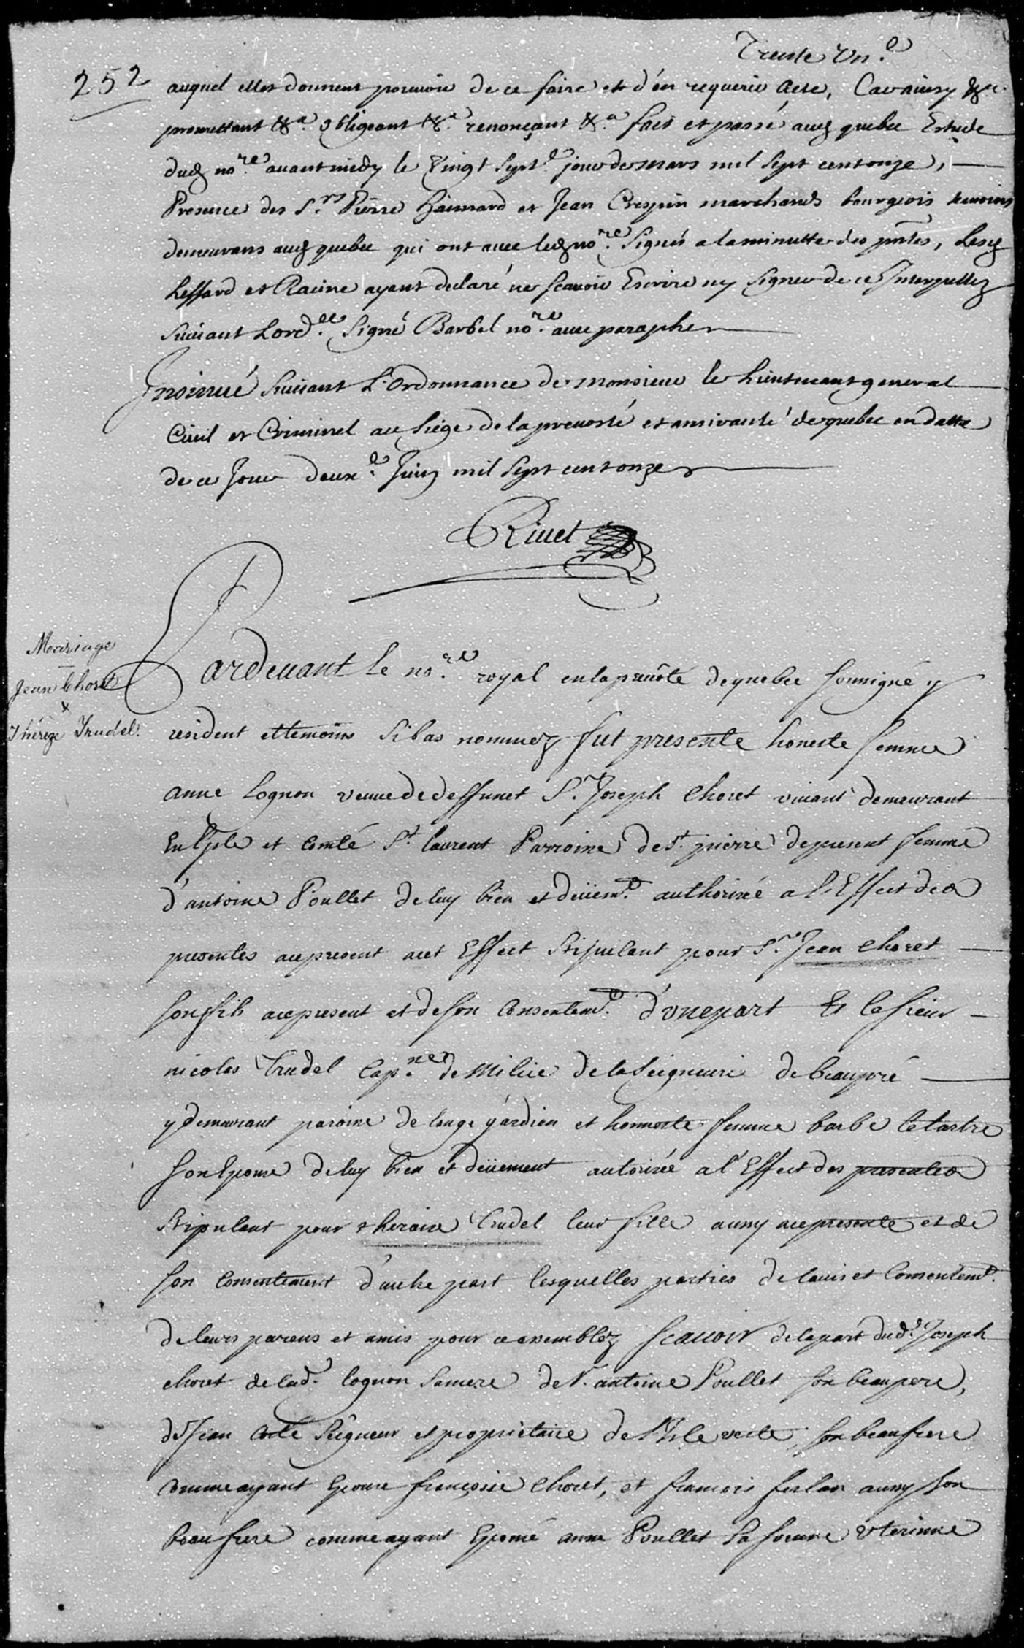 Trente Un.e
252
auquel elles donnent pouvoir de ce faire et d'en requerir acte, Car ainsy &c.
promettant &a. obligeant &a. renonçant &a. fait et passé aud quebec Estude
dud no.re avant midy le Vingt Sept.e jour de mars mil Sept cent onze,
Presence des S.rs Pierre haimard et Jean Crespin marchands bourgeois temoins
demeurans aud quebec qui ont avec led no.re Signés a la minutte des p.ntes, Lesd
Lessard et Racine ayant declaré ne scavoir Escrire ny Signer de ce Interpellez
Suivant Lord.ce Signé Barbel no.re avec paraphe
Insinué Suivant L'Ordonnance de monsieur le Lieutenant general
Civil et Criminel au Siége de la prevosté et amirauté de quebec en datte
de ce Jour deux.e Juin mil Sept cent onze
Rivet
Mariage
Jean Choret
x
Thérèse Trudel.
Pardevant Le no.re royal en la prevôté de quebec soussigné y
resident et temoins Si bas nommez fut presente honeste femme
anne Lognon veuve de deffunct S.r Joseph Choret vivant demeurant
En L'isle et Comté S.t Laurent Parroisse de S.t pierre de present femme
d'antoine Poullet de luy bien et düem.t authorisée a L'Effect des
presentes a ce present a cet Effect Stipulant pour S.r Jean Choret
son fils a ce present et de son Consentem.t d'une part Et le sieur
nicolas Trudel Cap.ne de Milice de la Seigneurie de beaupré
y demeurant paroisse de lange gardien et honneste femme barbe letartre
son Epouse de luy bien et düement autorisée a l'Effect des presentes
Stipulant pour theraise Trudel leur fille aussy a ce presente et de
son Consentement d'autre part lesquelles parties de lavis et Consentem.t
de leurs parens et amis pour ce assemblez Scavoir de la part dud. Joseph
choret de lad. lognon sa mere de S.r antoine Poullet son beau pere,
de Jean Coté Seigneur et proprietaire de L'Isle verte, son beau frere
comme ayant Epousé françoise Choret, et francois ferlan aussy son
beau frere comme ayant Epousé anne Poullet sa soeur Uterinne